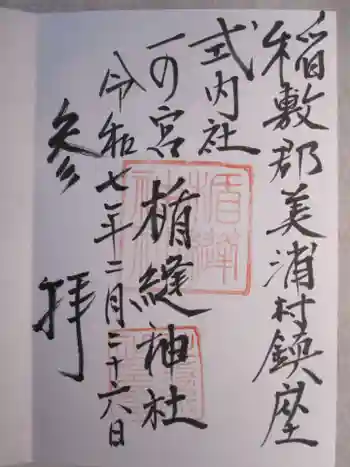 稲敷郡美浦村鎮座
式内社
一の宮 楯縫神社
令和七年二月二十六日
参拝